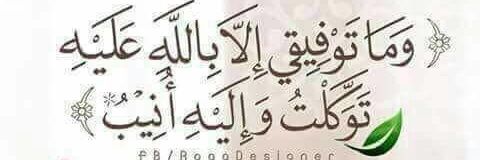 ﴿ وَمَا تَوْفِيقِي إِلَّا بِاللَّهِ عَلَيْهِ
تَوَكَّلْتُ وَإِلَيْهِ أُنِيبُ ﴾
FB/RogoDesigner